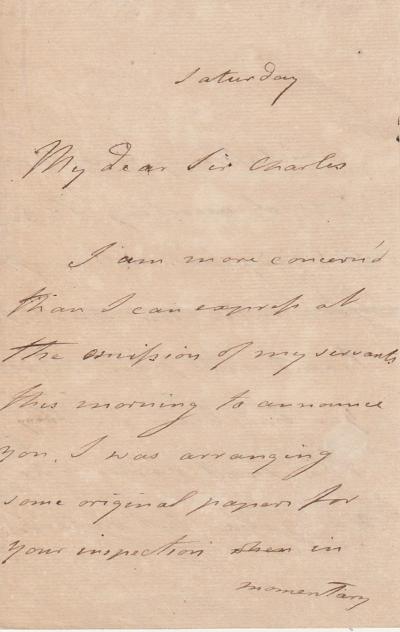 Saturday
My dear Sir Charles
I am more concern'd
than I can express at
the omission of my servants
this morning to announce
you. I was arranging
some original papers for
your inspection in
momentary